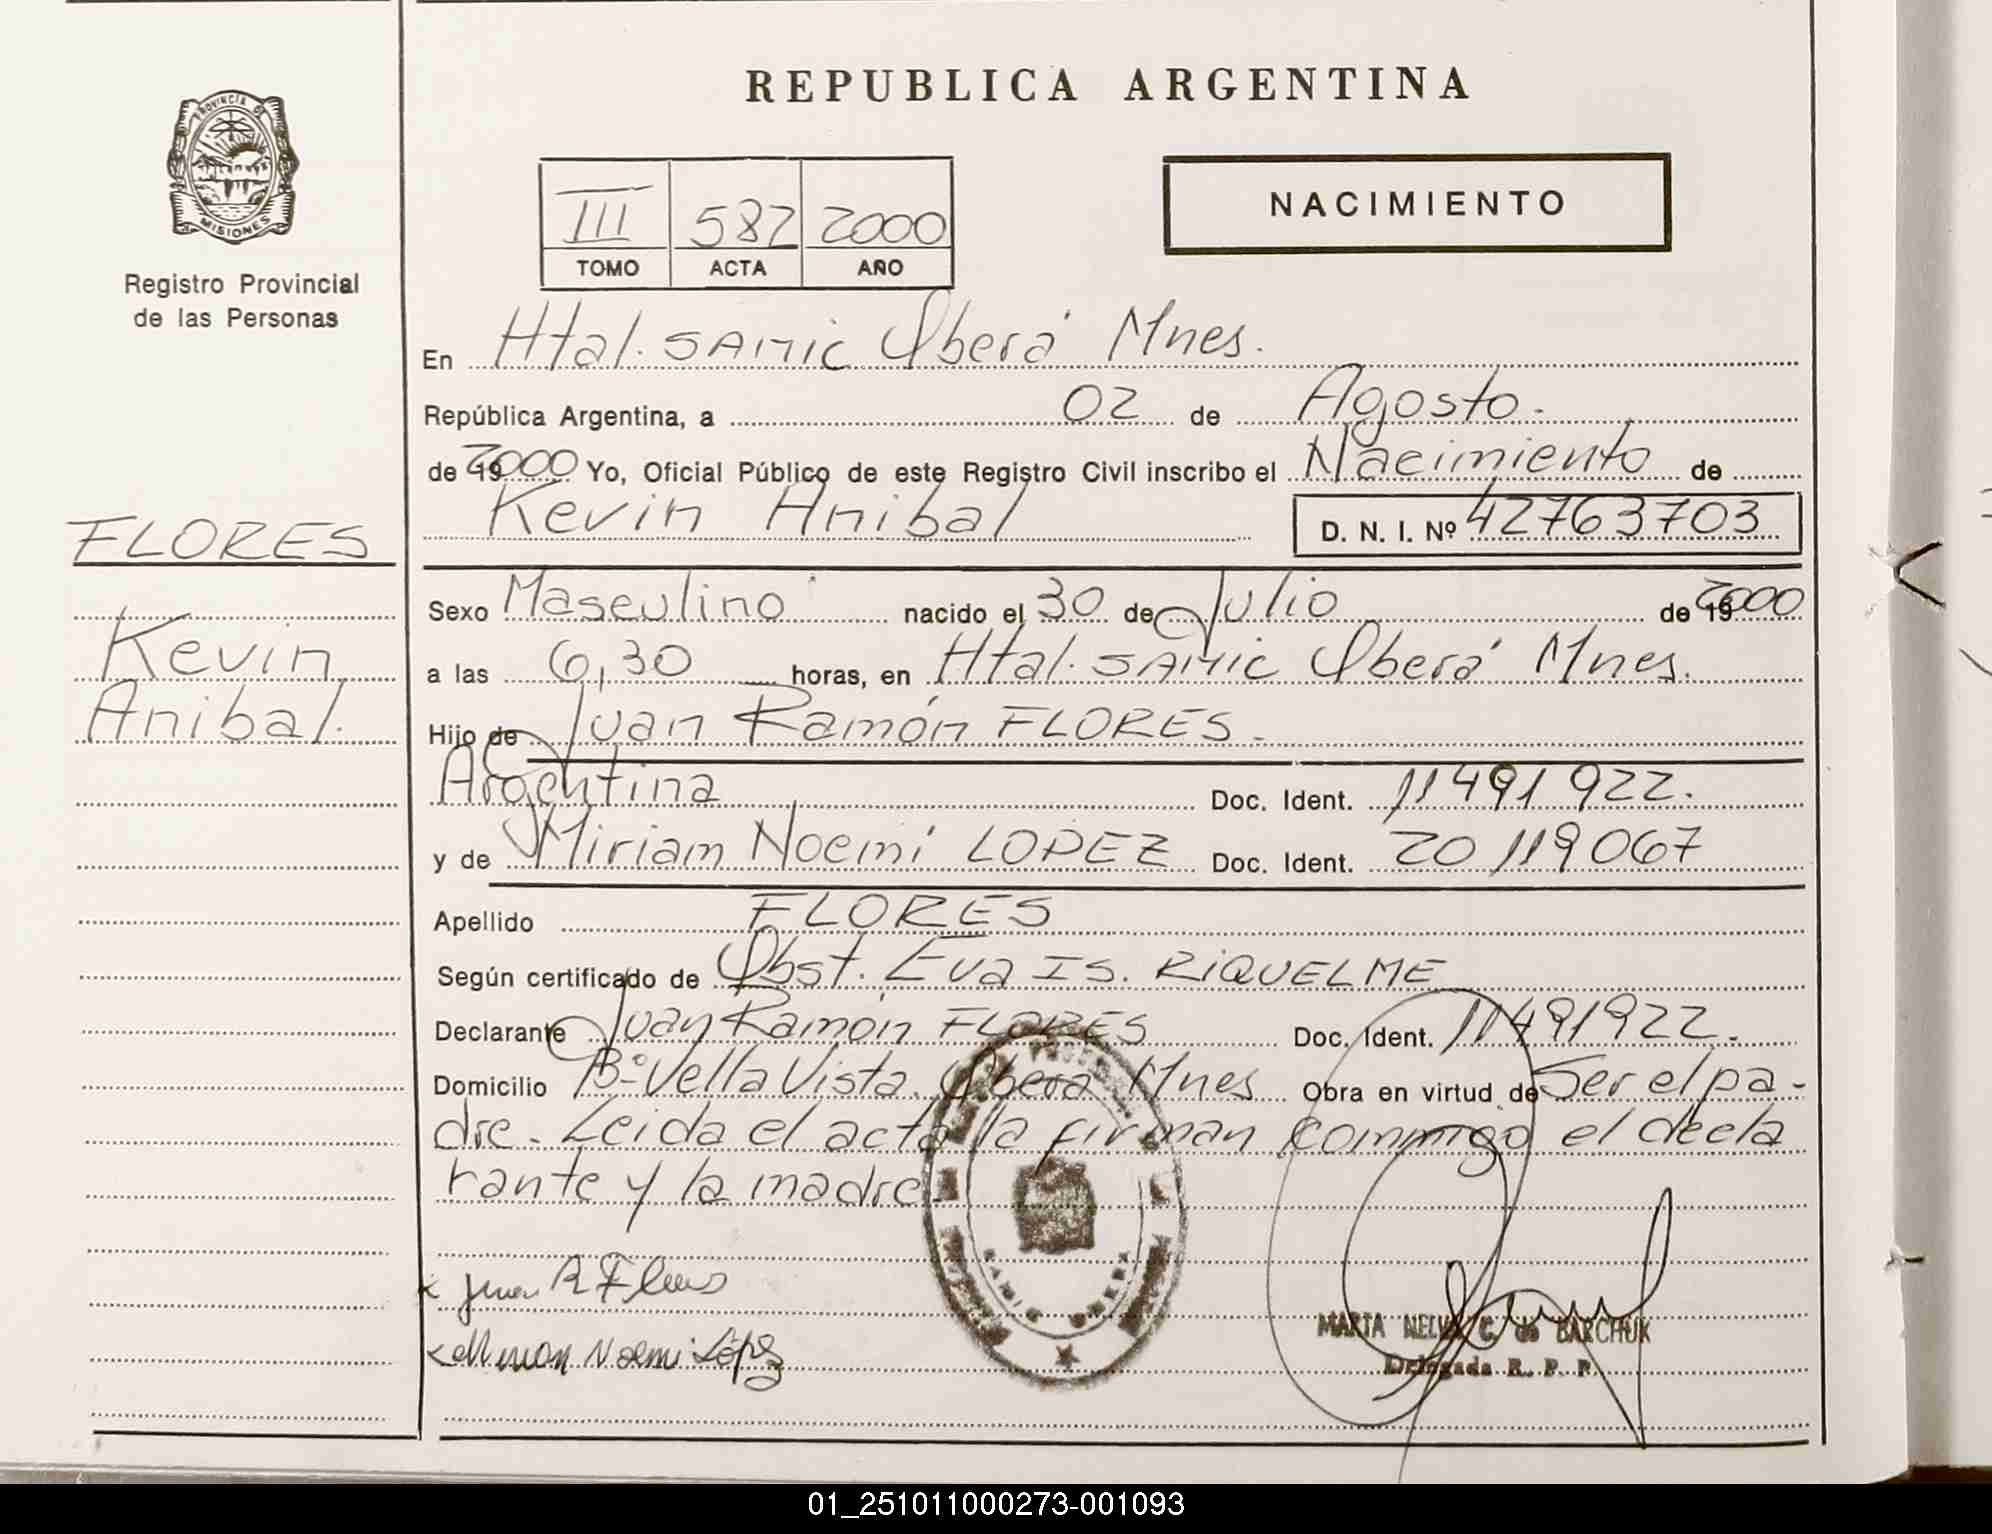 REPUBLICA ARGENTINA
PROVINCIA DE
MISIONES
Registro Provincial
de las Personas
III 582 2000
TOMO ACTA AÑO
NACIMIENTO
En Htal. SAMIC Oberá Mnes.
República Argentina, a 02 de Agosto.
de 19 2000 Yo, Oficial Público de este Registro Civil inscribo el Nacimiento de
Kevin Anibal D. N. I. Nº 42763703
FLORES
Kevin
Anibal.
Sexo Masculino nacido el 30 de Julio de 19 2000
a las 6,30 horas, en Htal. SAMIC Oberá Mnes.
Hijo de Juan Ramón FLORES.
Argentina Doc. Ident. 11491922.
y de Miriam Noemí LOPEZ Doc. Ident. 20119067
Apellido FLORES
Según certificado de Obst. Eva Is. RIQUELME
Declarante Juan Ramón FLORES Doc. Ident. 11491922.
Domicilio Bº Vella Vista. Oberá Mnes Obra en virtud de Ser el pa-
dre. Leida el acta la firman commigo el decla
rante y la madre.
x Juan R Flores
x Miriam Noemi López
MARTA NELVA C. de BARCHUK
Delegada R. P. P.
01_251011000273-001093